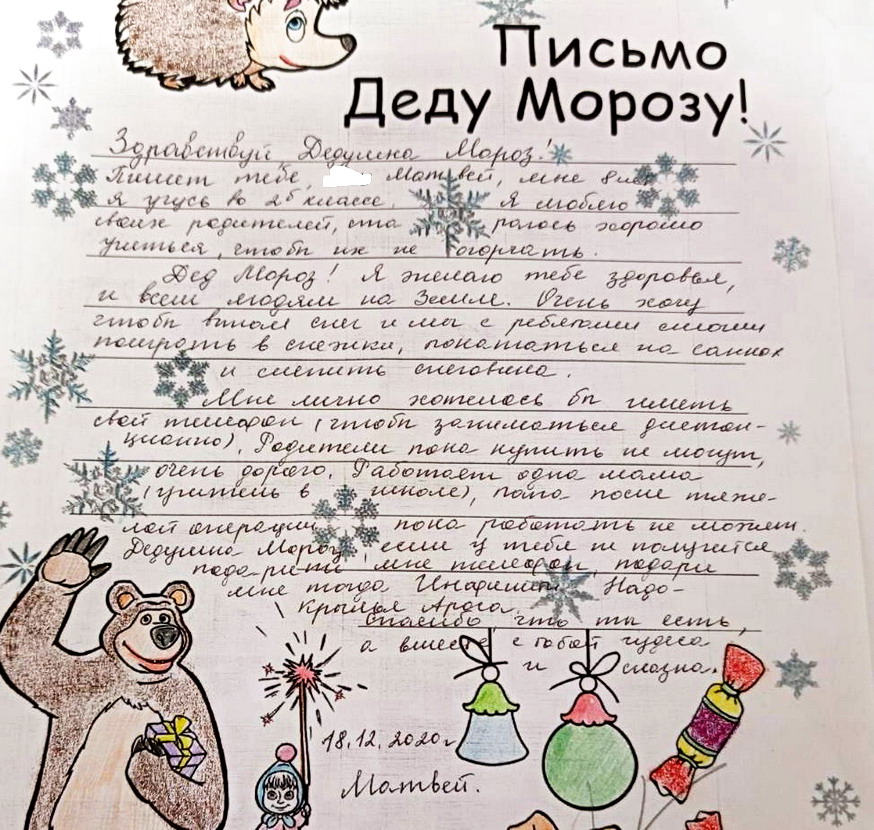 Письмо
Деду Морозу!
Здравствуй, Дедушка Мороз!
Пишет тебе, Матвей, мне 8 лет
я учусь во 2б классе. Я люблю
своих родителей, ста ралось хорошо
учиться, чтобы их не огорчать.
Дед Мороз! Я желаю тебе здоровья,
и всем людям на Земле. Очень хочу
чтобы выпал снег и мы с ребятами смогли
поиграть в снежки, покататься на санках
и слепить снеговика.
Мне лично хотелось бы иметь
свой телефон (чтобы заниматься дистан-
ционно). Родители пока купить не могут,
очень дорого. Работает одна мама
(учитель в школе), папа после тяже-
лой операции пока работать не может.
Дедушка Мороз, если у тебя не получится
пода-рить мне телефон, подари
мне тогда Надо-
Крылья
спасибо что ты есть,
а вместе с тобой чудеса
и сказка.
18.12.2020г
Матвей.